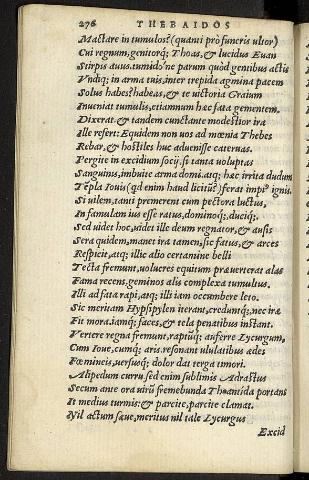 276 THEBAIDOS
Mactare in tumulos? (quanti prò funeris ultor)
Cui regnum, genitorq; Thoas, & lucidus Euan
Stirpis auus. tumido' ne parum quòd gentibus actis
Vndiq; in arma tuis, inter trepida agmina pacem
Solus habes? habeas, & te uictoria Graium
Inueniat tumulis, etiamnum hæc fata gementem.
Dixerat. & tandem cunctante modestior ira
Ille refert: Equidem non uos ad mœnia Thebes
Rebar, & hostiles huc aduenisse cateruas.
Pergite in excidium socij. si tanta uoluptas
Sanguinis, imbuite arma domi. atq; hæc irrita dudum
Tēpla Iouis (qd enim haud licitū?) ferat impi⁹ ignis.
Si uilem, tanti premerent cum pectora luctus,
In famulam ius esse ratus, dominoq;, duciq;.
Sed uidet hoc, uidet ille deum regnator, & ausis
Sera quidem, manet ira tamen, sic fatus, & arces
Respicit, atq; illic alio certamine belli
Tecta fremunt, uolucres equitum præuerterat alas
Fama recens, geminos alis complexa tumultus.
Illi ad fata rapi, atq; illi iam occumbere leto.
Sic meritam Hypsipylen iterant, credumq;. nec iræ
Fit mora. iamq; faces, & tela penatibus instant.
Vertere regna fremunt, rapiūq; auferre Lycurgum,
Cum Ioue, cumq; aris. resonant ululatibus ædes
Fœmineis, uersusq; dolor dat terga timori.
Alipedum curru sed enim sublimis Adrastus
Secum ante ora uirū fremebunda Thoanti da portans
It medius turmis: & parcite, parcite clamat.
Nil actum sæue, meritus nil tale Lycurgus
Excid